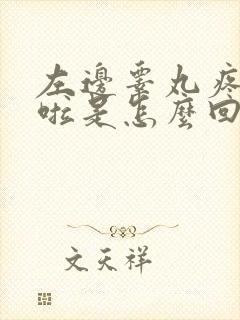 左邊睾丸疼
啦是怎麼回
文天祥